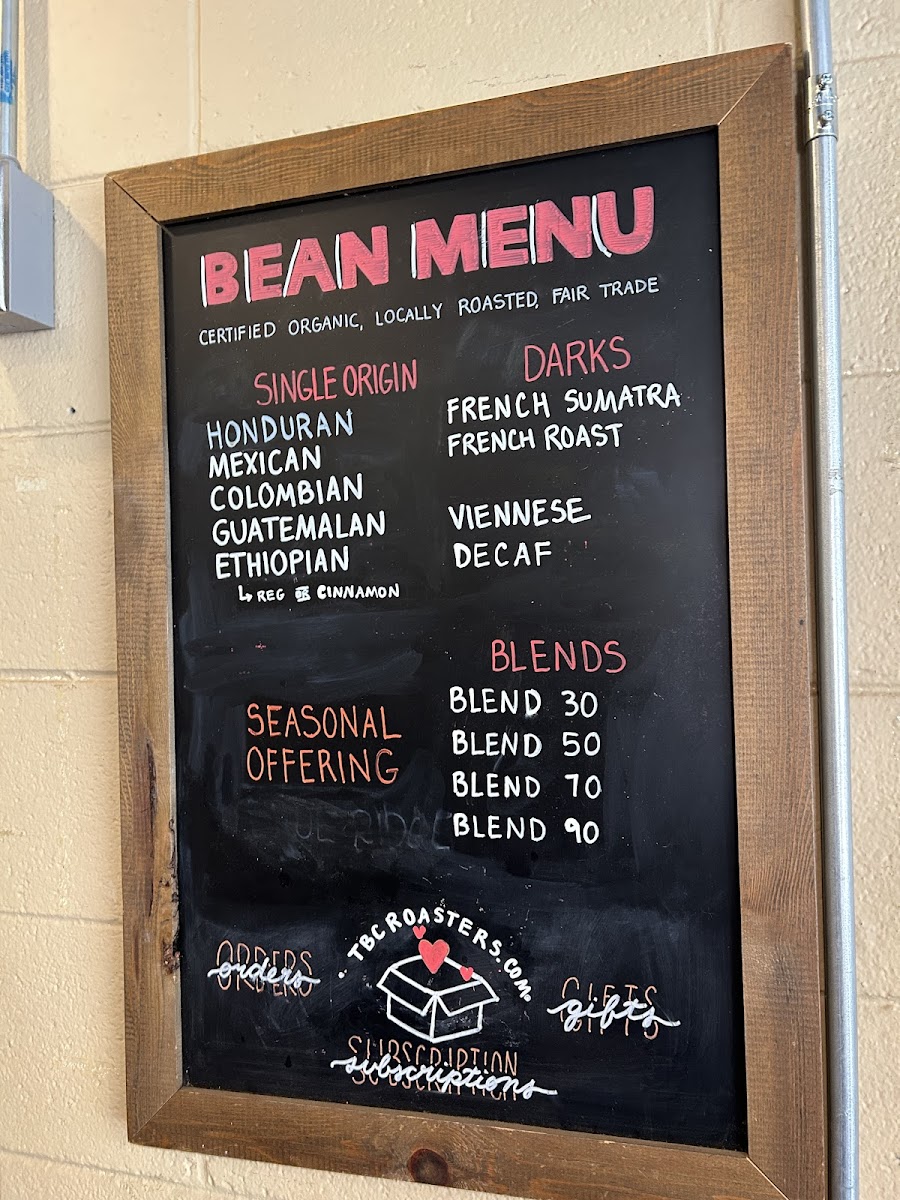 BEAN MENU
CERTIFIED ORGANIC, LOCALLY ROASTED, FAIR TRADE
SINGLE ORIGIN
HONDURAN
MEXICAN
COLOMBIAN
GUATEMALAN
ETHIOPIAN
↳ REG OR CINNAMON
DARKS
FRENCH SUMATRA
FRENCH ROAST
VIENNESE
DECAF
SEASONAL
OFFERING
BLENDS
BLEND 30
BLEND 50
BLEND 70
BLEND 90
· TBCROASTERS.COM·
ORDERS
orders
GIFTS
gifts
SUBSCRIPTION
subscriptions